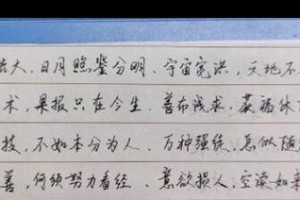 浩大、日月照鉴分明、宇宙宽洪、天地不
术、果报只在今生、善布浅求、获福休
技、不如本分为人、万种强徒、怎似随
善、何须努力看经、意欲损人、空读如来